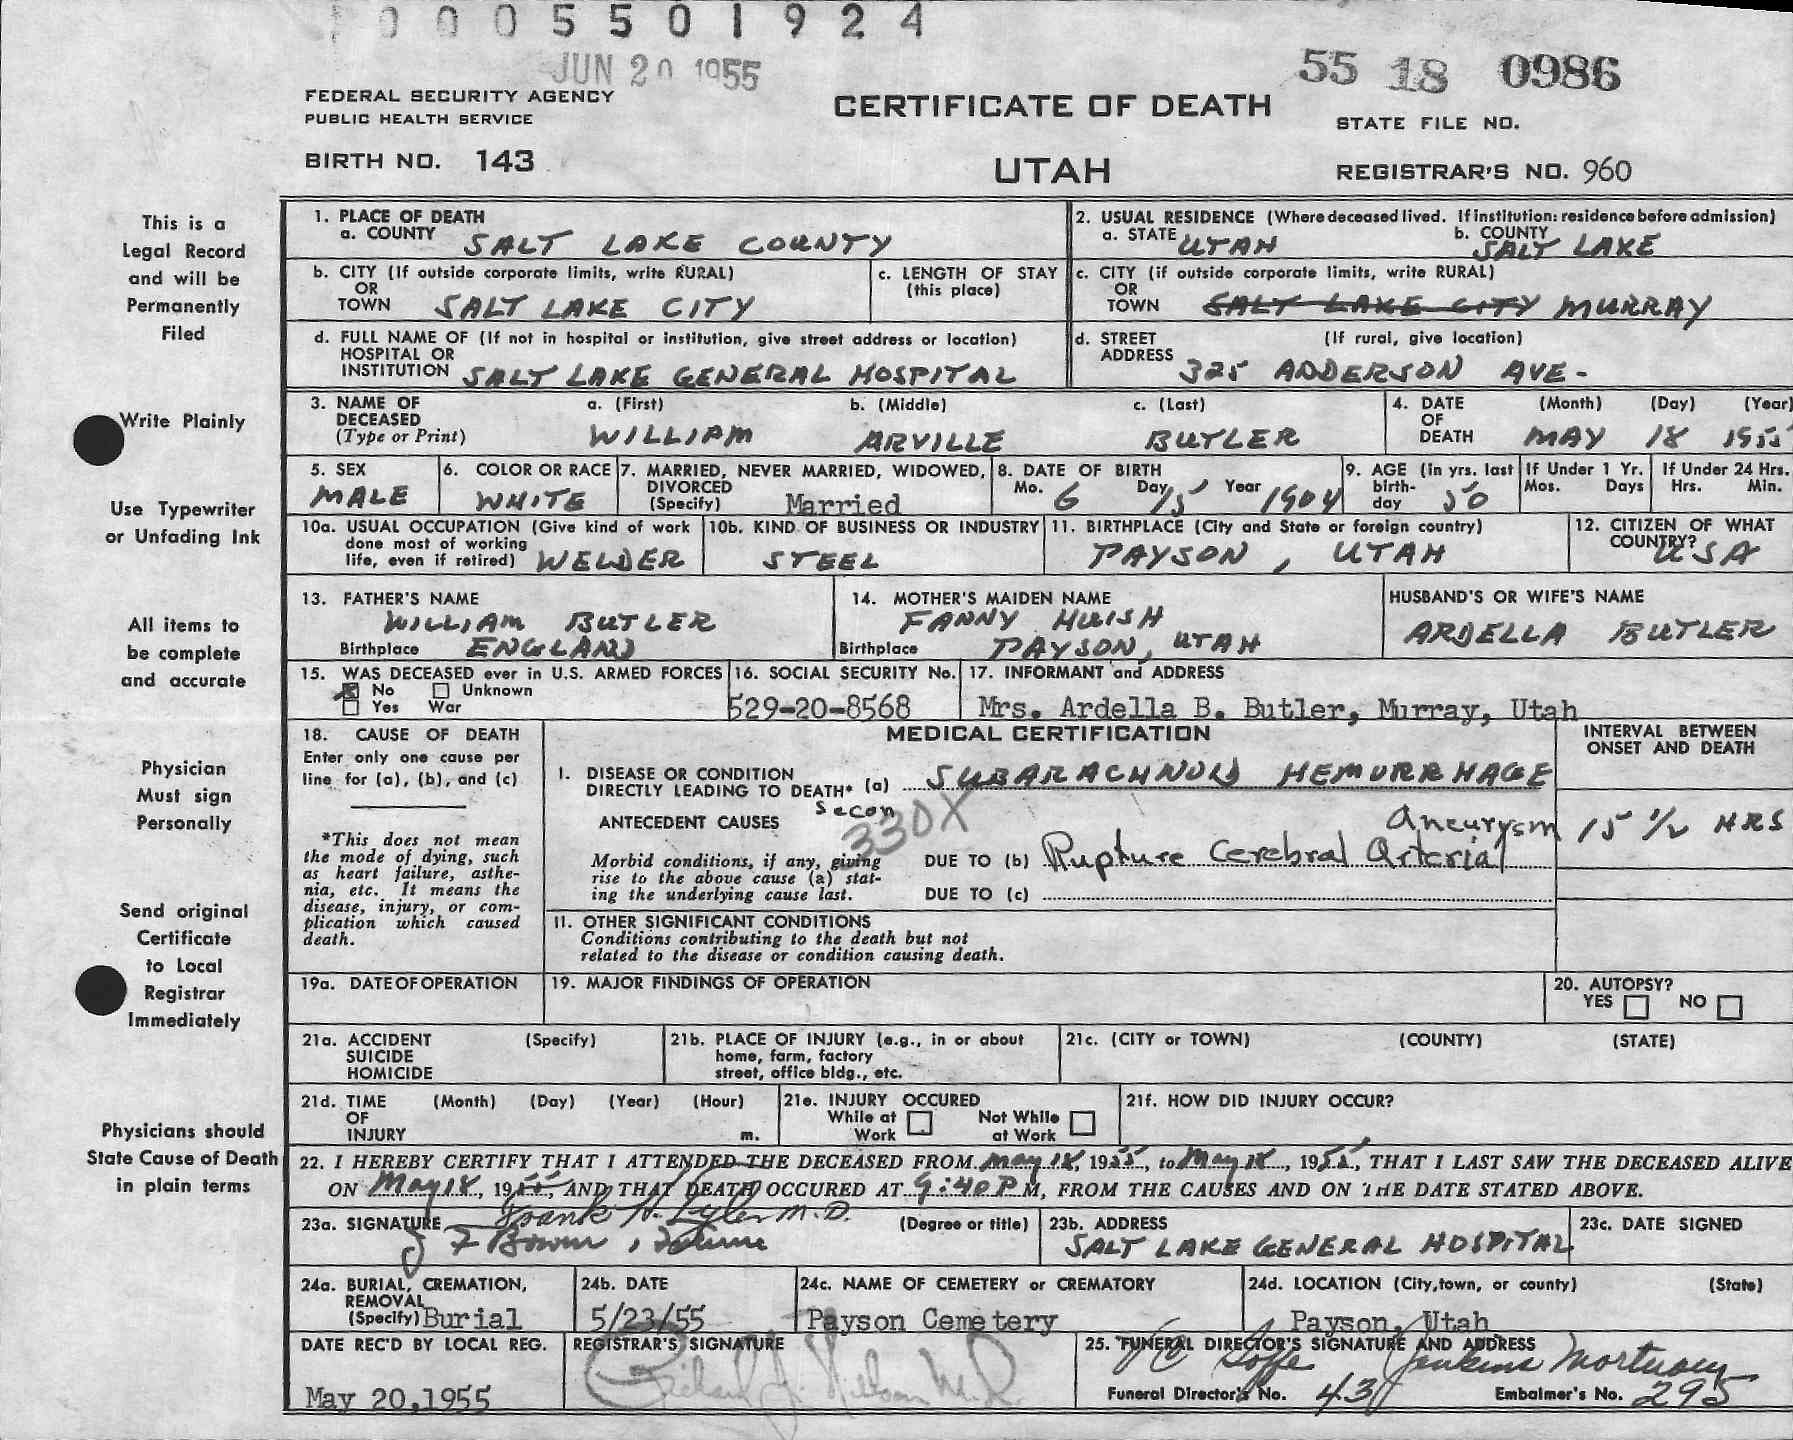 0005501924
JUN 20 1955
55 18 0986
FEDERAL SECURITY AGENCY
PUBLIC HEALTH SERVICE
CERTIFICATE OF DEATH
STATE FILE NO.
BIRTH NO. 143
UTAH
REGISTRAR'S NO. 960
This is a
Legal Record
and will be
Permanently
Filed
Write Plainly
Use Typewriter
or Unfading Ink
All items to
be complete
and accurate
Physician
Must sign
Personally
Send original
Certificate
to Local
Registrar
Immediately
Physicians should
State Cause of Death
in plain terms
1. PLACE OF DEATH
a. COUNTY SALT LAKE COUNTY
2. USUAL RESIDENCE (Where deceased lived. If institution: residence before admission)
a. STATE UTAH b. COUNTY SALT LAKE
b. CITY (If outside corporate limits, write RURAL)
OR
TOWN SALT LAKE CITY
c. LENGTH OF STAY
(this place)
c. CITY (if outside corporate limits, write RURAL)
OR
TOWN SALT LAKE CITY MURRAY
d. FULL NAME OF (If not in hospital or institution, give street address or location)
HOSPITAL OR
INSTITUTION SALT LAKE GENERAL HOSPITAL
d. STREET (If rural, give location)
ADDRESS 325 ADDERSON AVE-
3. NAME OF a. (First) b. (Middle) c. (Last)
DECEASED
(Type or Print) WILLIAM ARVILLE BUTLER
4. DATE (Month) (Day) (Year)
OF
DEATH MAY 18 1955
5. SEX
MALE
6. COLOR OR RACE
WHITE
7. MARRIED, NEVER MARRIED, WIDOWED,
DIVORCED
(Specify) Married
8. DATE OF BIRTH
Mo. 6 Day 15 Year 1904
9. AGE (in yrs. last
birth-
day 50
If Under 1 Yr.
Mos. Days
If Under 24 Hrs.
Hrs. Min.
10a. USUAL OCCUPATION (Give kind of work
done most of working
life, even if retired) WELDER
10b. KIND OF BUSINESS OR INDUSTRY
STEEL
11. BIRTHPLACE (City and State or foreign country)
PAYSON, UTAH
12. CITIZEN OF WHAT
COUNTRY? USA
13. FATHER'S NAME
WILLIAM BUTLER
Birthplace ENGLAND
14. MOTHER'S MAIDEN NAME
FANNY HUISH
Birthplace PAYSON, UTAH
HUSBAND'S OR WIFE'S NAME
ARDELLA BUTLER
15. WAS DECEASED ever in U.S. ARMED FORCES
No Unknown
Yes War
16. SOCIAL SECURITY No.
529-20-8568
17. INFORMANT and ADDRESS
Mrs. Ardella B. Butler, Murray, Utah
18. CAUSE OF DEATH
Enter only one cause per
line for (a), (b), and (c)
*This does not mean
the mode of dying, such
as heart failure, asthe-
nia, etc. It means the
disease, injury, or com-
plication which caused
death.
MEDICAL CERTIFICATION
INTERVAL BETWEEN
ONSET AND DEATH
I. DISEASE OR CONDITION
DIRECTLY LEADING TO DEATH* (a) SUBARACHNOID HEMORRHAGE
Secon
330X
ANTECEDENT CAUSES
Aneurysm 15 1/2 HRS
Morbid conditions, if any, giving
rise to the above cause (a) stat-
ing the underlying cause last.
DUE TO (b) Rupture Cerebral Arterial
DUE TO (c)
II. OTHER SIGNIFICANT CONDITIONS
Conditions contributing to the death but not
related to the disease or condition causing death.
19a. DATE OF OPERATION
19. MAJOR FINDINGS OF OPERATION
20. AUTOPSY?
YES NO
21a. ACCIDENT (Specify)
SUICIDE
HOMICIDE
21b. PLACE OF INJURY (e.g., in or about
home, farm, factory
street, office bldg., etc.
21c. (CITY or TOWN) (COUNTY) (STATE)
21d. TIME (Month) (Day) (Year) (Hour)
OF
INJURY m.
21e. INJURY OCCURED
While at Not While
Work at Work
21f. HOW DID INJURY OCCUR?
22. I HEREBY CERTIFY THAT I ATTENDED THE DECEASED FROM May 18, 1955, to May 18, 1955, THAT I LAST SAW THE DECEASED ALIVE
ON May 18, 1955, AND THAT DEATH OCCURED AT 9:40 P M, FROM THE CAUSES AND ON THE DATE STATED ABOVE.
23a. SIGNATURE Frank H. Tyler M.D. (Degree or title)
23b. ADDRESS
SALT LAKE GENERAL HOSPITAL
23c. DATE SIGNED
24a. BURIAL, CREMATION,
REMOVAL
(Specify) Burial
24b. DATE
5/23/55
24c. NAME OF CEMETERY or CREMATORY
Payson Cemetery
24d. LOCATION (City, town, or county) (State)
Payson, Utah
DATE REC'D BY LOCAL REG.
May 20, 1955
REGISTRAR'S SIGNATURE
25. FUNERAL DIRECTOR'S SIGNATURE AND ADDRESS
Jenkins Mortuary
Funeral Director's No. 430 Embalmer's No. 295